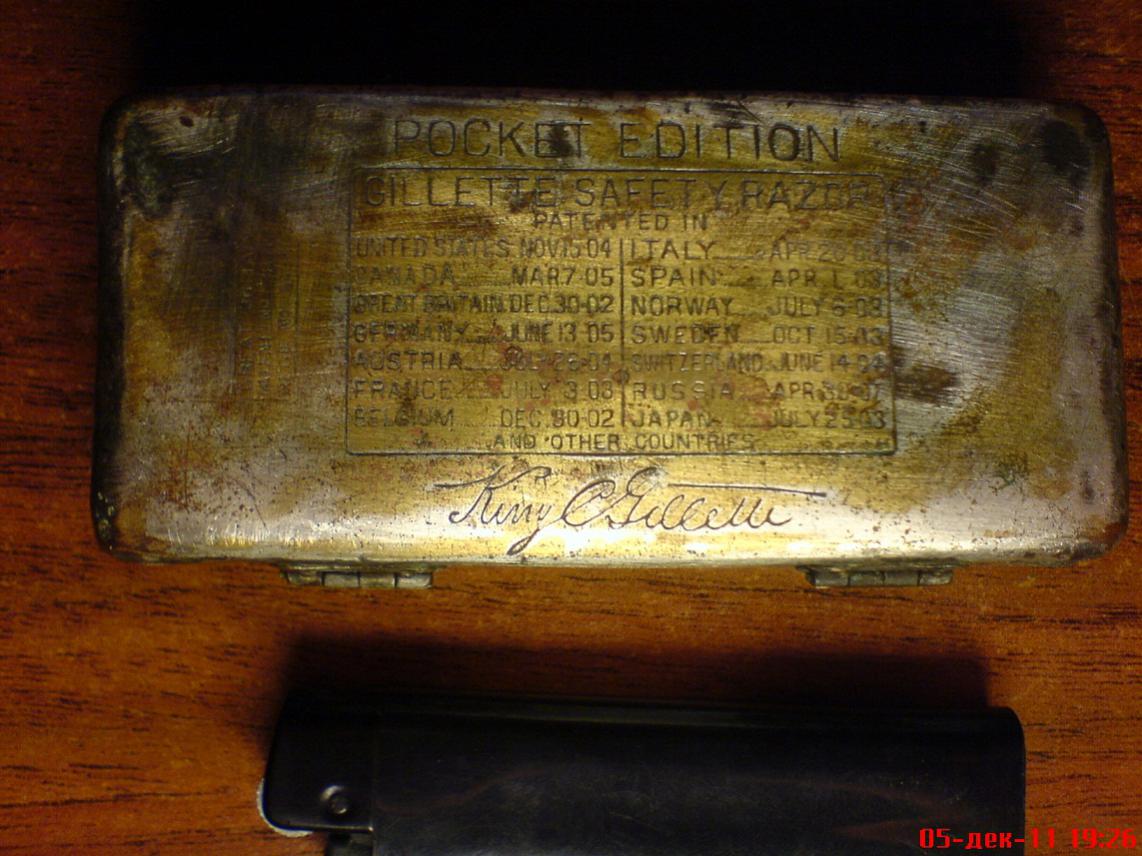 POCKET EDITION
GILLETTE SAFETY RAZOR
PATENTED IN
UNITED STATES NOV.15-04 ITALY APR.
CANADA MAR 7-05 SPAIN APR. 1-03
GREAT BRITAIN DEC.30-02 NORWAY JULY 6-03
GERMANY JUNE 13-05 SWEDEN OCT 15-03
AUSTRIA SWITZERLAND JUNE 14-04
FRANCE JULY 3-03 RUSSIA APR.
BELGIUM DEC.30-02 JAPAN JULY 25-03
AND OTHER COUNTRIES
King C Gillette
05-дек-11 19:26